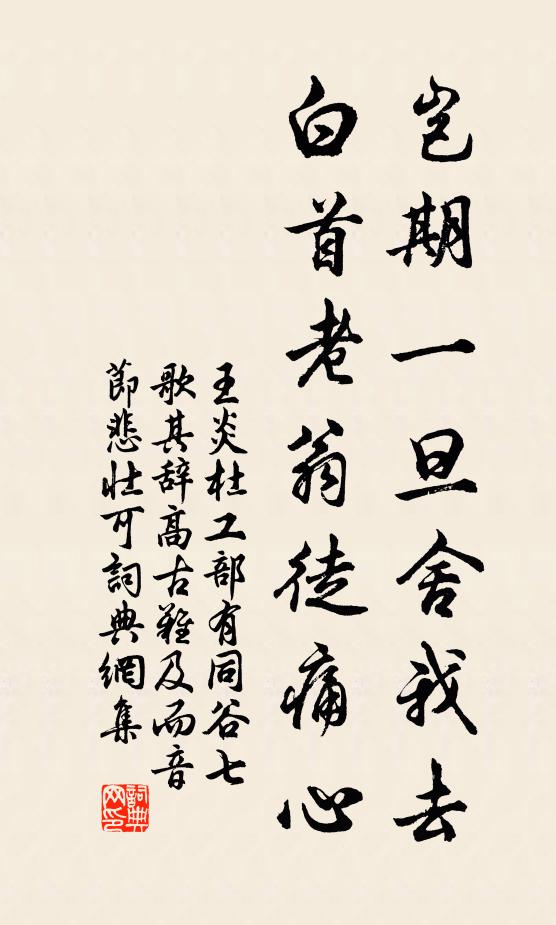 岂期一旦舍我去
白首老翁徒痛心
王炎杜工部有同谷七
歌其辞高古難及而音
節悲壯可詞典網集
詞典网印